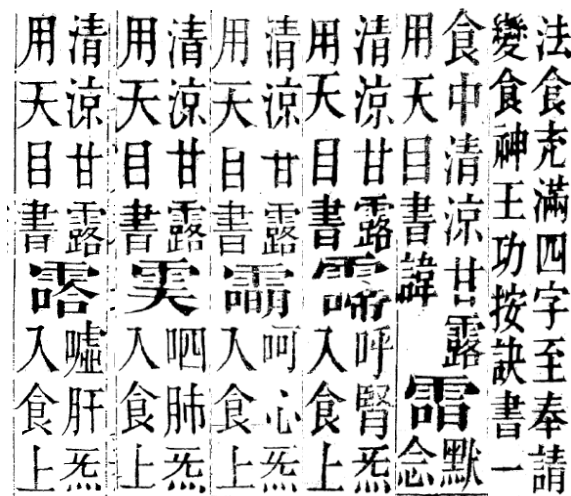 法食充滿四字至奉請
變食神王功按訣書一
食中清涼甘露默
用天目書諱念
清涼甘露呼腎炁
用天目書入食上
清涼甘露呵心炁
用天目書入食上
清涼甘露呬肺炁
用天目書入食上
清涼甘露噓肝炁
用天目書入食上